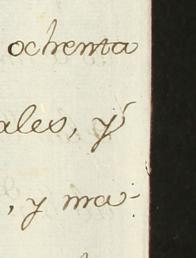 ochenta
ales, y
, y ma-